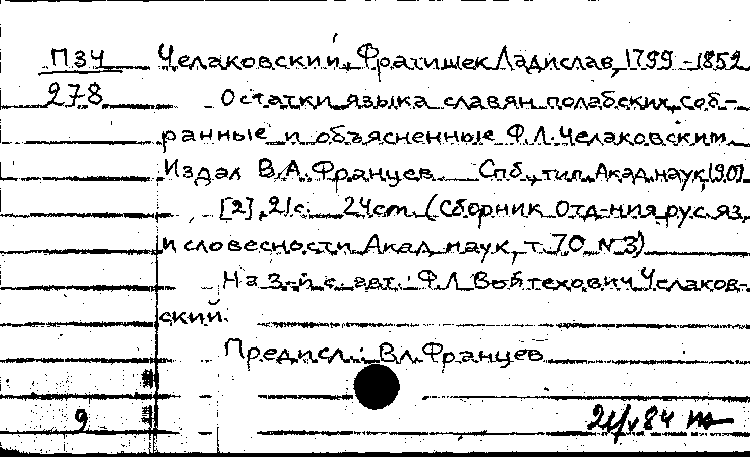 П34 Челаковский, Фратишек Ладислав, 1799-1852
278 Остатки языка славян полабских, соб-
ранные и объясненные Ф.Л.Челаковским.
Издал В.А.Францев Спб., тип. Акад.наук, 1901
[2], 21с. 24cm. (Сборник Отд-ния рус.яз.
и словесности Акад. наук, т.70 N 3)
На 3-й с. авт.: Ф.Л. Войтехович Челаков-
ский.
Предисл.: Вл.Францев
9 21/V 84